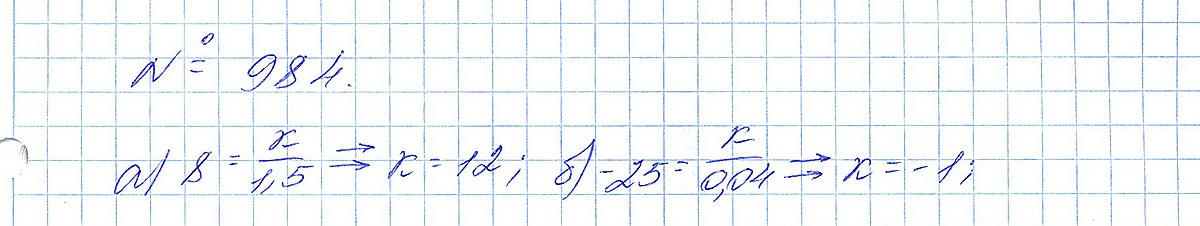 № 984.
а) 8 = к/1,5 ⇒ к = 12; б) -25 = к/0,04 ⇒ к = -1;